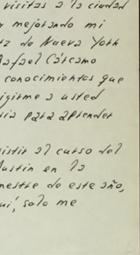 visitas a la ciudad
mejorando mi
de Nueva York
Rafael Cárcamo
conocimientos que
dirigirme a usted
para aprender
asistir al curso del
Austin en la
semestre de este año,
aquí, solo me